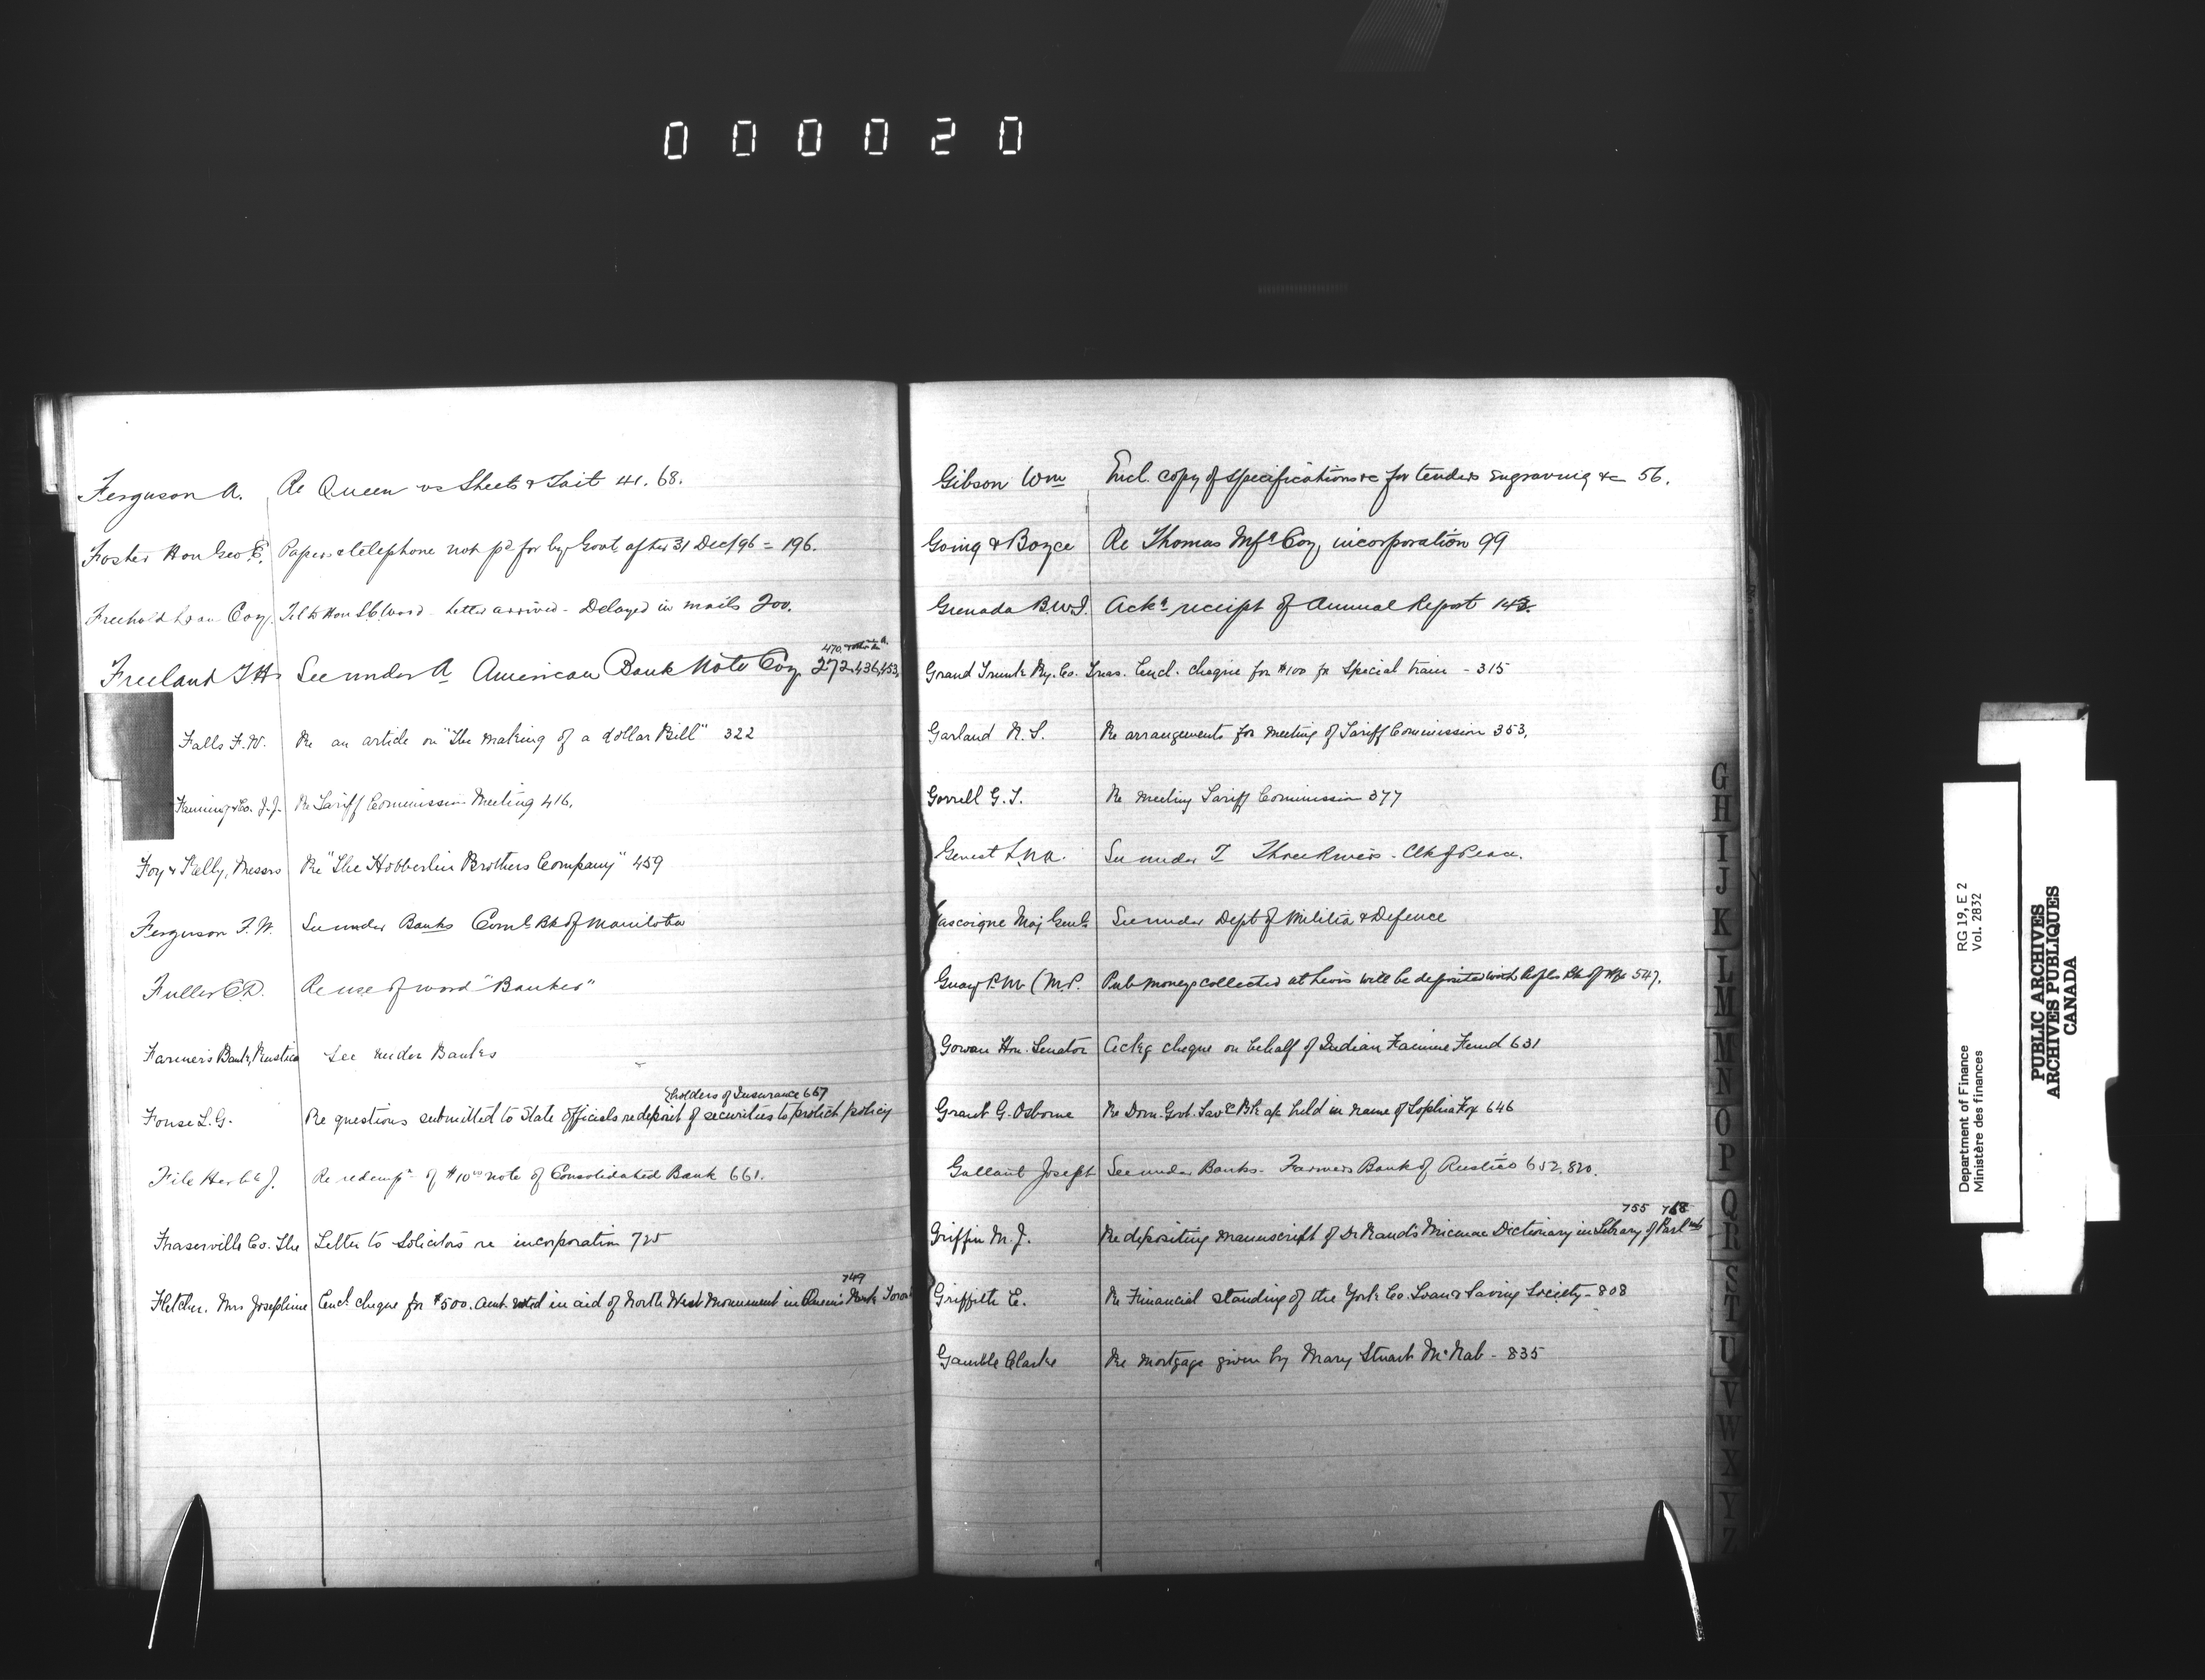 000020
Ferguson A. Re Queen vs Sheets & Tait 41. 68.
Foster Hon Geo E. Papers & telephone not pd for by Govt after 31 Dec/96 = 196.
Freehold Loan Coy. Tel to Hon S.C. Wood - Letter arrived - Delayed in mails 200.
470.
Freeland T H See under A American Bank Note Coy 272, 436, 453,
Falls F. W. Re an article on "The making of a dollar Bill" 322
& Co. J. J. Re Tariff Commission Meeting 416.
Foy & Kelly, Messrs Re "The Hobberlin Brothers Company" 459
Ferguson F. W. See under Banks Coml Bk of Manitoba
Fuller C. D. Re use of word "Banker"
Farmer's Bank, Rustico See under Banks
holders of Insurance 667
Fouse L. G. Re questions submitted to State Officials re deposit of securities to protect policy
File Herbt J. Re redempn of $10 note of Consolidated Bank 661.
Fraserville Co. The Letter to Solicitors re incorporation 725
749
Fletcher. Mrs Josephine Encl. cheque for $500. Amt. voted in aid of North West Monument in Queen's Park Toron
Gibson Wm Encl. copy of specifications &c for tenders Engraving &c 56.
Going & Boyce Re Thomas Mfg Coy, incorporation 99
Grenada B.W.I. Ackg receipt of Annual Report 143.
Grand Trunk Ry. Co. Treas. Encl. cheque for $100 for Special train - 315
Garland N. S. Re arrangements for meeting of Tariff Commission 353,
Gorrell G. T. Re meeting Tariff Commission 377
Genest L. U. A. See under T Three Rivers - Clk of Peace.
Gascoigne Maj Genl See under Dept of Militia & Defence
Guay P. M (M.P. Pub moneys collected at Levis will be deposited with Peoples Bk of Hfx 547.
Gowan Hon. Senator Ackg cheque on behalf of Indian Famine Fund 631
Grant G. Osborne Re Dom. Govt. Savgs Bk a/c held in name of Sophia Fox 646
Gallant Joseph See under Banks - Farmers Bank of Rustico 652, 820.
755 768
Griffin M. J. Re depositing manuscript of Dr Rand's Micmac Dictionary in Library of Parlmnt
Griffith E. Re Financial standing of the York Co. Loan & Saving Society - 808
Gamble Clarke Re Mortgage given by Mary Stuart McNab - 835
G
H
I
J
K
L
M
M
N
O
P
Q
R
S
T
U
V
W
X
Y
Z
Department of Finance
Ministère des finances
RG 19, E 2
Vol. 2832
PUBLIC ARCHIVES
ARCHIVES PUBLIQUES
CANADA